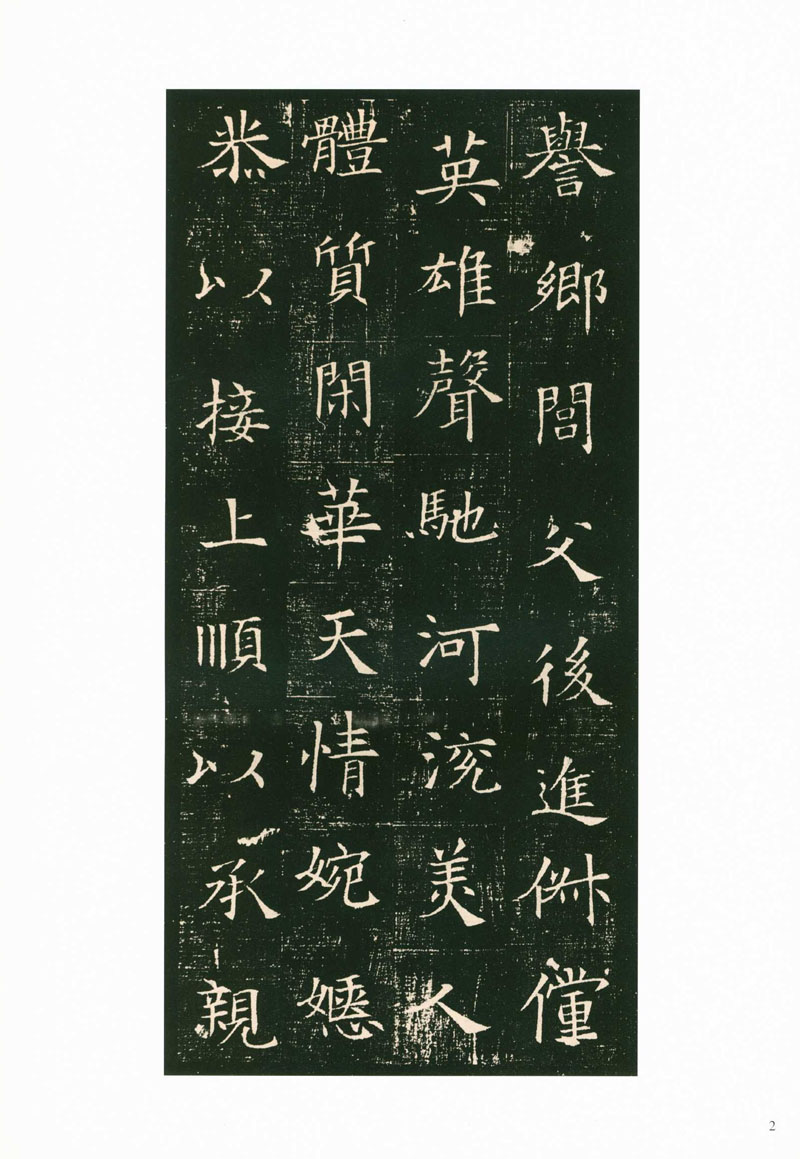 譽鄉閭父後進俶儻
英雄聲馳河渷美人
體質閑華天情婉嫕
恭以接上順以承親
2